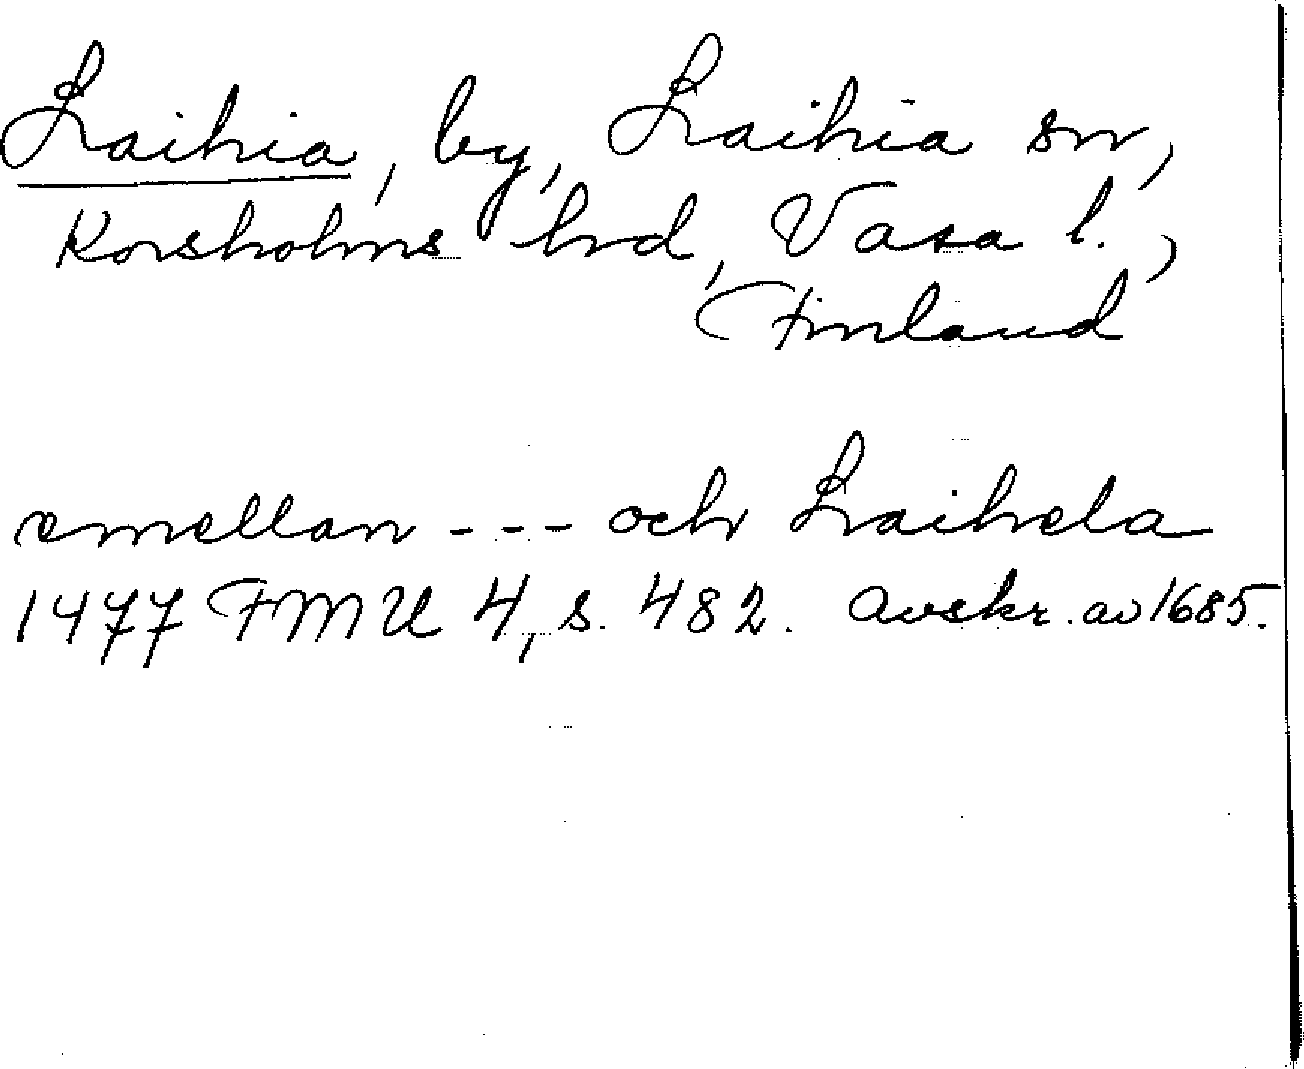 Laihia, by, Laihia sn,
Korsholms hrd, Vasa l.,
Finland
emellan --- och Laihela
1477 FMU 4, s. 482. Avskr. av 1685.